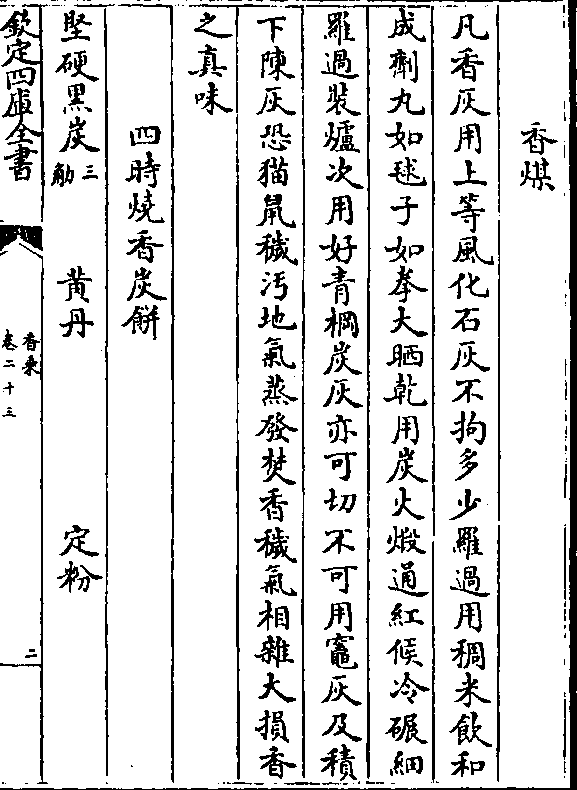 香煤
凡香灰用上等風化石灰不拘多少羅過用稠米飲和
成劑丸如毬子如拳大晒乾用炭火煅通紅候冷碾細
羅過裝爐次用好青棡炭灰亦可切不可用竈灰及積
下陳灰恐猫鼠穢汚地氣蒸發焚香穢氣相雜大損香
之真味
四時燒香炭餅
堅硬黑炭三觔 黃丹 定粉
欽定四庫全書
香乘
卷二十三
二